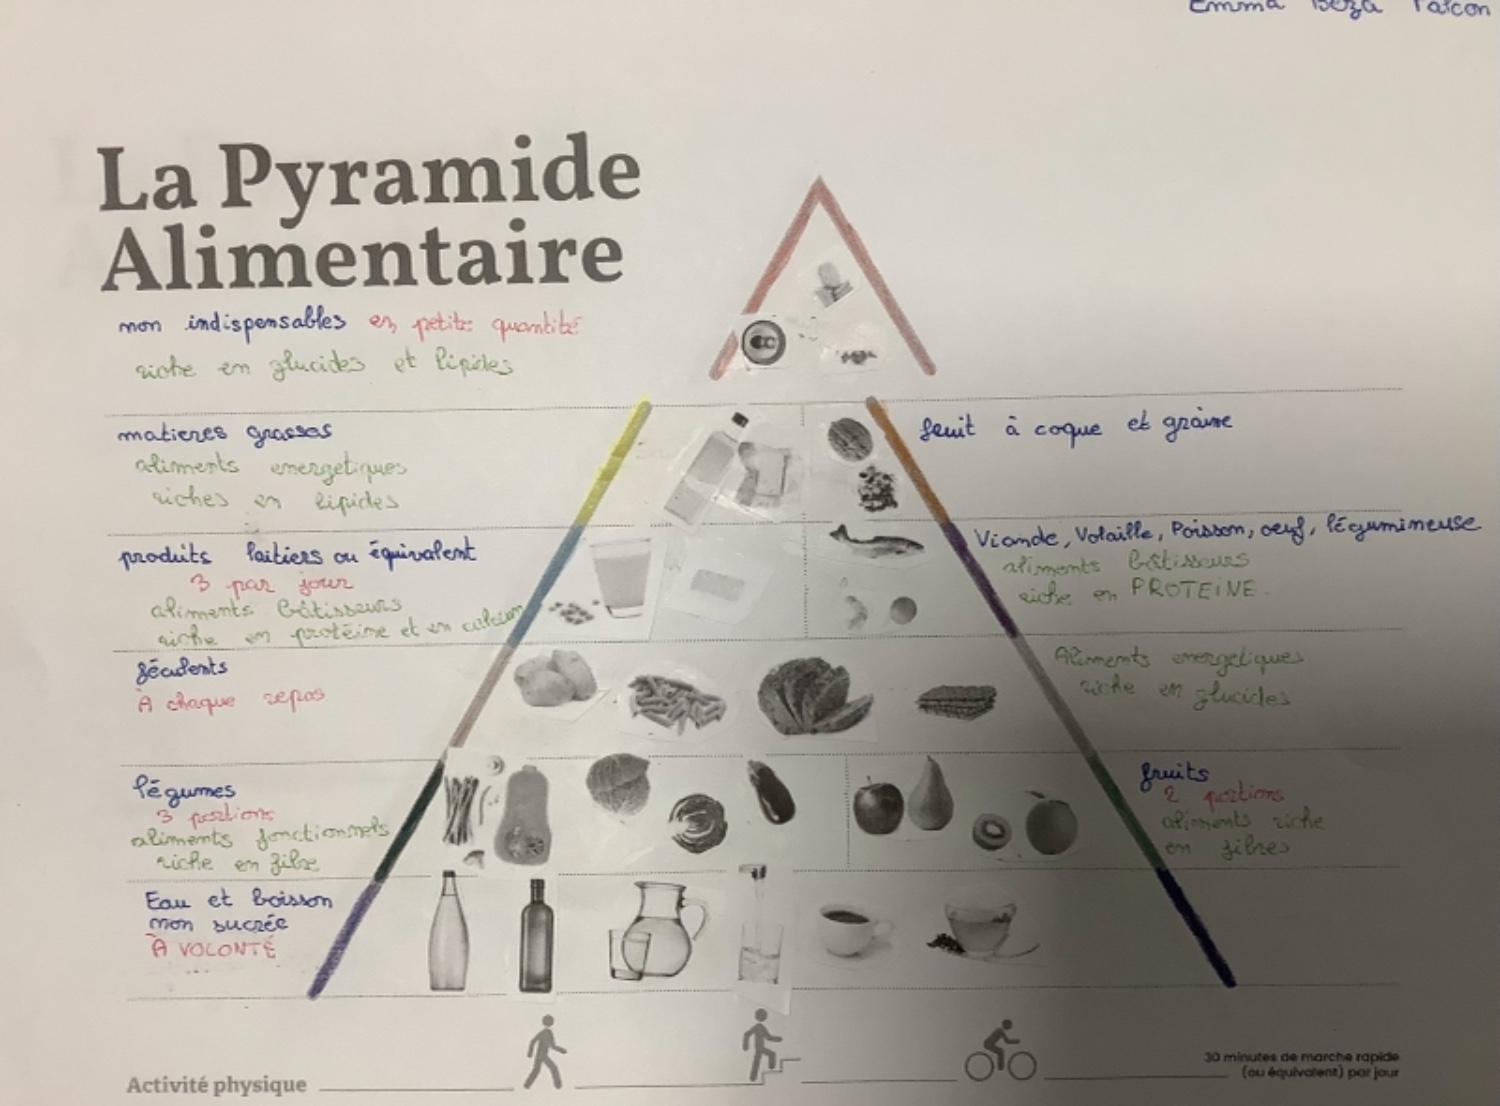 Emma Beza Falcon
La Pyramide
Alimentaire
non indispensables en petite quantité
riche en glucides et lipides
matieres grasses
aliments energetiques
riches en lipides
fruit à coque et graine
produits laitiers ou équivalent
3 par jour
aliments bâtisseurs
riche en protéine et en calcium
Viande, Volaille, Poisson, oeuf, légumineuse
aliments bâtisseurs
riche en PROTEINE.
féculents
À chaque repas
Aliments energetiques
riche en glucides
légumes
3 portions
aliments fonctionnels
riche en fibre
fruits
2 portions
aliments riche
en fibres
Eau et boisson
non sucrée
À VOLONTÉ
Activité physique
30 minutes de marche rapide
(ou équivalent) par jour